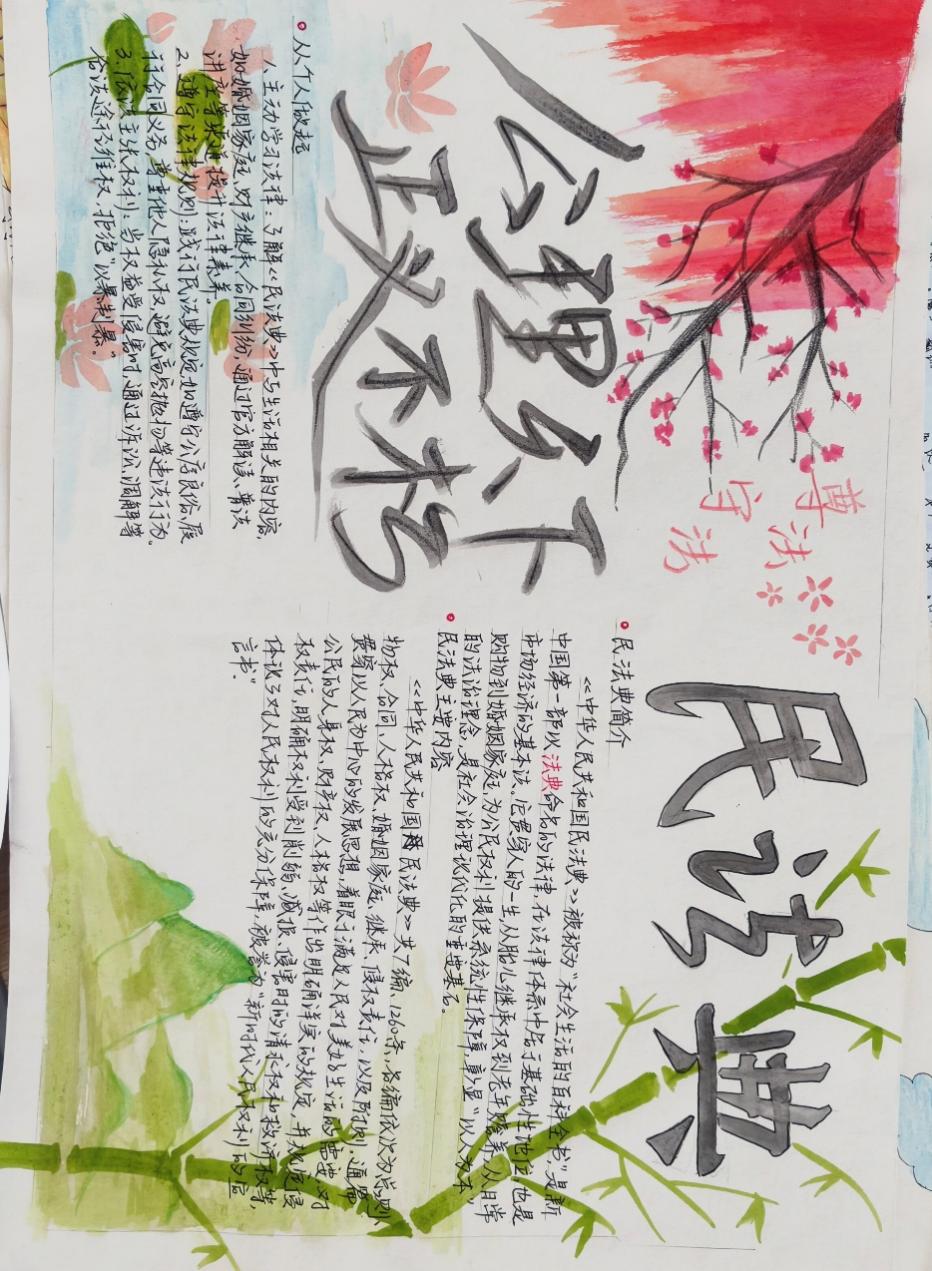 公理久不
正义不朽
尊法
守法
民法典
从个人做起
1. 主动学习法律：了解《民法典》中与生活相关的内容,
如婚姻家庭、财产继承、合同纠纷，通过官方解读、普法
讲座等渠道提升法律素养。
2. 遵守法律规则：践行民法典规定，如遵守公序良俗、履
行合同义务，尊重他人隐私权，避免高空抛物等违法行为。
3. 依法主张权利：当权益受侵害时，通过诉讼、调解等
合法途径维权，拒绝“以暴制暴”。
民法典简介
《中华人民共和国民法典》被称为“社会生活的百科全书”,是新
中国第一部以法典命名的法律，在法律体系中居于基础性地位，也是
市场经济的基本法。它贯穿人的一生，从胎儿继承权到老年赡养，从日常
购物到婚姻家庭，为公民权利提供系统性保障，彰显“以人为本”
的法治理念，是社会治理现代化的重要基石。
民法典主要内容
《中华人民共和国民法典》共7编、1260条，各编依次为总则、
物权、合同、人格权、婚姻家庭、继承、侵权责任，以及附则。通篇
贯穿以人民为中心的发展思想，着眼于满足人民对美好生活的需要，对
公民的人身权、财产权、人格权等作出明确详实的规定，并规定侵
权责任，明确权利受到削弱、减损、侵害时的请求权和救济权等，
体现了对人民权利的充分保障，被誉为“新时代人民权利的宣
言书”。